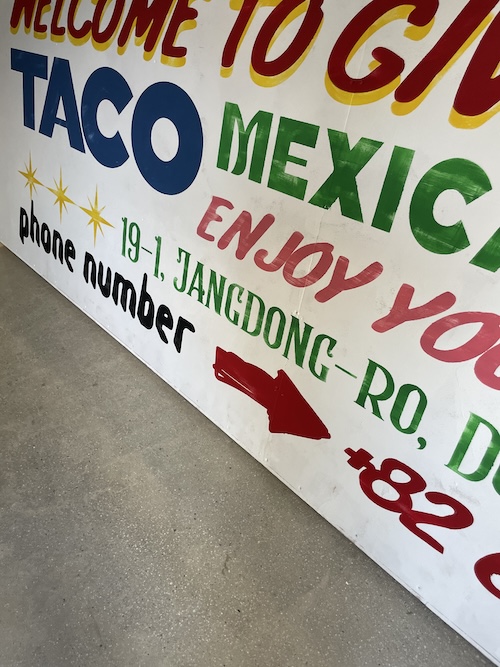 WELCOME TO
TACO MEXICA
ENJOY
19-1, JANGDONG-RO,
phone number
+82